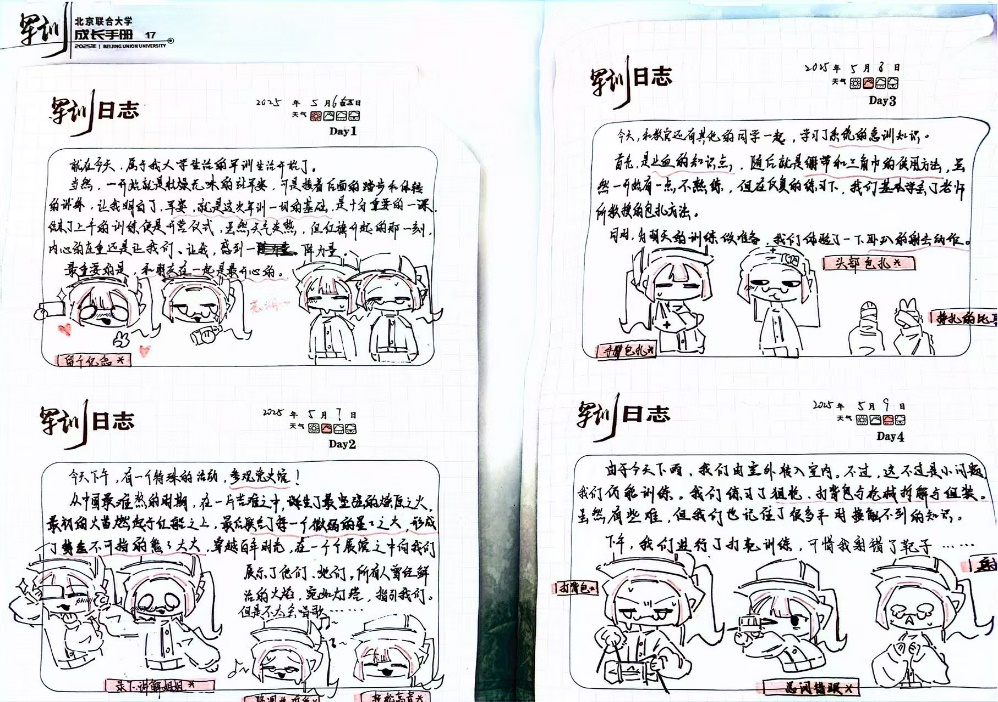 军训
北京联合大学
成长手册 17
2025年 | BEIJING UNION UNIVERSITY
军训日志
2025年5月6日
天气
Day1
就在今天,属于我大学生活的军训生活开始了。
当然,一开始就是枯燥无味的站军姿,可是接着后面的踏步和体验
的讲解,让我明白了,军姿,就是这次军训一切的基础,是十分重要的一课。
结束了上午的训练便是开营仪式,虽然天气炎热,但红旗升起的那一刻,
内心的庄重还是让我们、让我,感到
最重要的是,和朋友在一起是最开心的。
军训日志
2025年5月7日
天气
Day2
今天下午,有一个特殊的活动,参观
从中国最难熬的时期,在一片苦难之中,诞生了最坚强的燎原之火,
最初的火苗燃起于红船之上,最后聚合了每一个微弱的星星之火,形成
了势不可挡的熊熊大火,穿越百年时光,在一个个展馆之中向我们
展示了他们、她们,所有人曾经鲜
活的火焰,宛如灯塔,指引我们。
但是不太会唱歌……
军训日志
2025年5月8日
天气
Day3
今天,和教官还有其他的同学一起,学习了系统的急训知识。
首先,是止血的知识点,随后就是绷带和三角巾的使用方法,虽
然一开始有一点不熟练,但在反复的练习下,我们基本学会了老师
所教授的包扎方法。
同时,为明天的训练做准备,我们体验了一下
头部包扎
包扎
军训日志
2025年5月9日
天气
Day4
由于今天下雨,我们由室外转入室内。不过,这不过是小问题,
我们仍能训练。我们练习了组枪、打背包与枪械拆解与组装。
虽然有些难,但我们也记住了很多平时接触不到的知识。
下午,我们进行了打靶训练,可惜我射错了靶子……
打背包